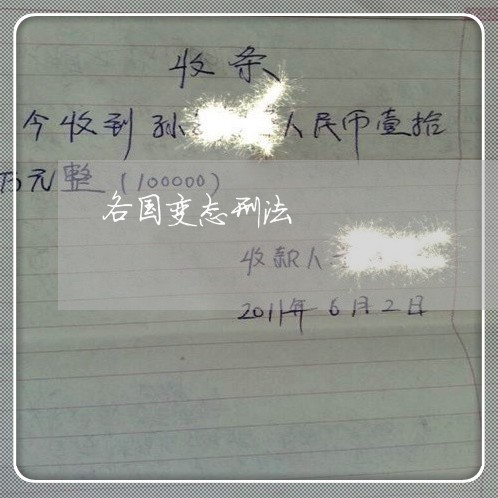 收条
今收到孙 人民币壹拾
万元整（100000）
各国变态刑法
收款人
2011年6月2日